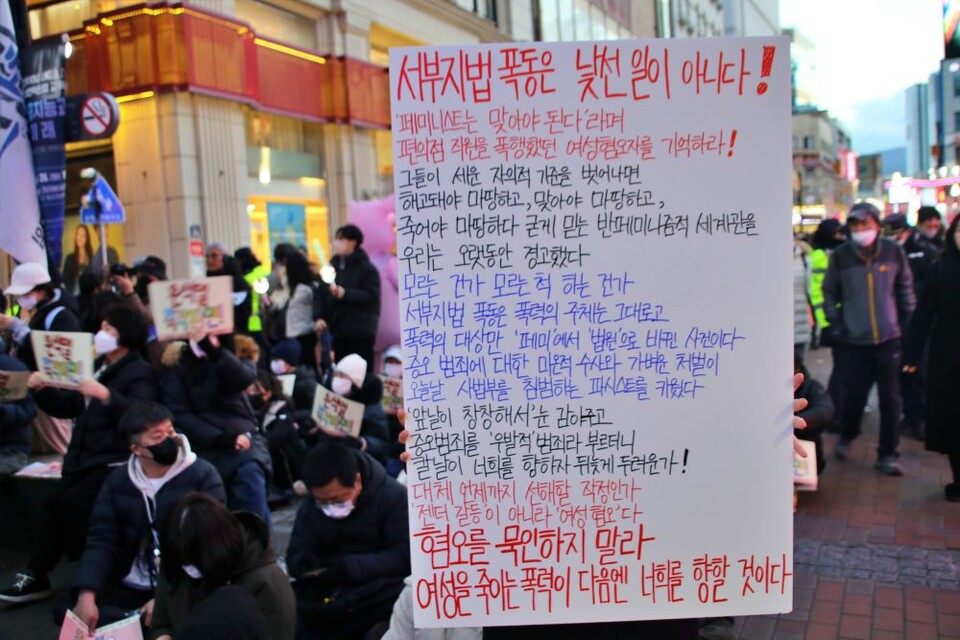 서부지법 폭동은 낯선 일이 아니다!
'페미니스트는 맞아야 된다'라며
편의점 직원을 폭행했던 여성혐오자를 기억하라!
그들이 세운 자의적 기준을 벗어나면
해고돼야 마땅하고, 맞아야 마땅하고,
죽어야 마땅하다 굳게 믿는 반페미니즘적 세계관을
우리는 오랫동안 경고했다
모르는 건가 모르는 척 하는 건가
서부지법 폭동은 폭력의 주체는 그대로고
폭력의 대상만 '페미'에서 '법원'으로 바뀐 사건이다
증오 범죄에 대한 미온적 수사와 가벼운 처벌이
오늘날 사법부를 침범하는 파시스트를 키웠다
'앞날이 창창해서' 눈 감아주고
증오범죄를 '우발적' 범죄라 부르더니
칼날이 너희를 향하자 뒤늦게 두려운가!
대체 언제까지 선해할 작정인가
'젠더 갈등'이 아니라 '여성혐오'다
혐오를 묵인하지 말라
여성을 죽이는 폭력이 다음엔 너희를 향할 것이다